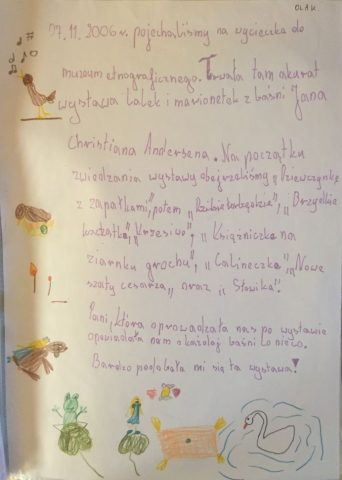 OLA K.
07.11.2006 r. pojechaliśmy na wycieczkę do
muzeum etnograficznego. Trwała tam akurat
wystawa lalek i marionetek z baśni Jana
Christiana Andersena. Na początku
zwiedzania wystawy obejrzeliśmy „Dziewczynkę
z zapałkami”, potem „ „Brzydkie
kaczątko”, „Krzesiwo”, „Księżniczka na
ziarnku grochu”, „Calineczka”, „Nowe
szaty cesarza„ oraz „Słowika”.
Pani, która oprowadzała nas po wystawie
opowiadała nam o każdej baśni co nieco.
Bardzo podobała mi się ta wystawa!